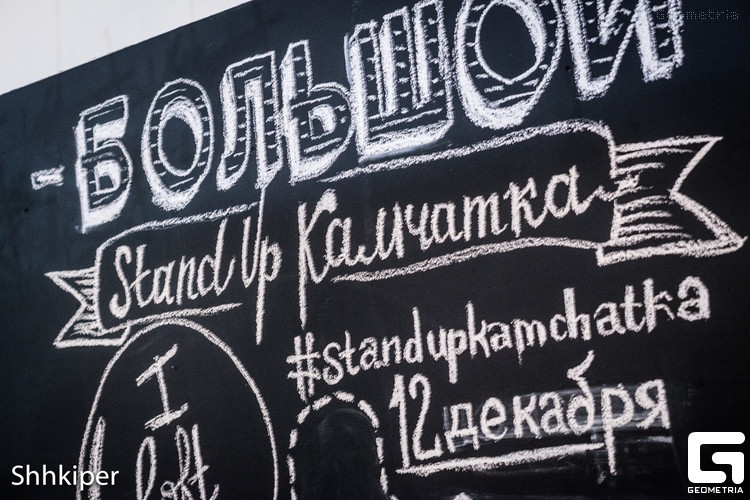 Geometria
-БОЛЬШОЙ
Stand Up Камчатка
#standupkamchatka
12 декабря
I
loft
Shhkiper
GEOMETRIA